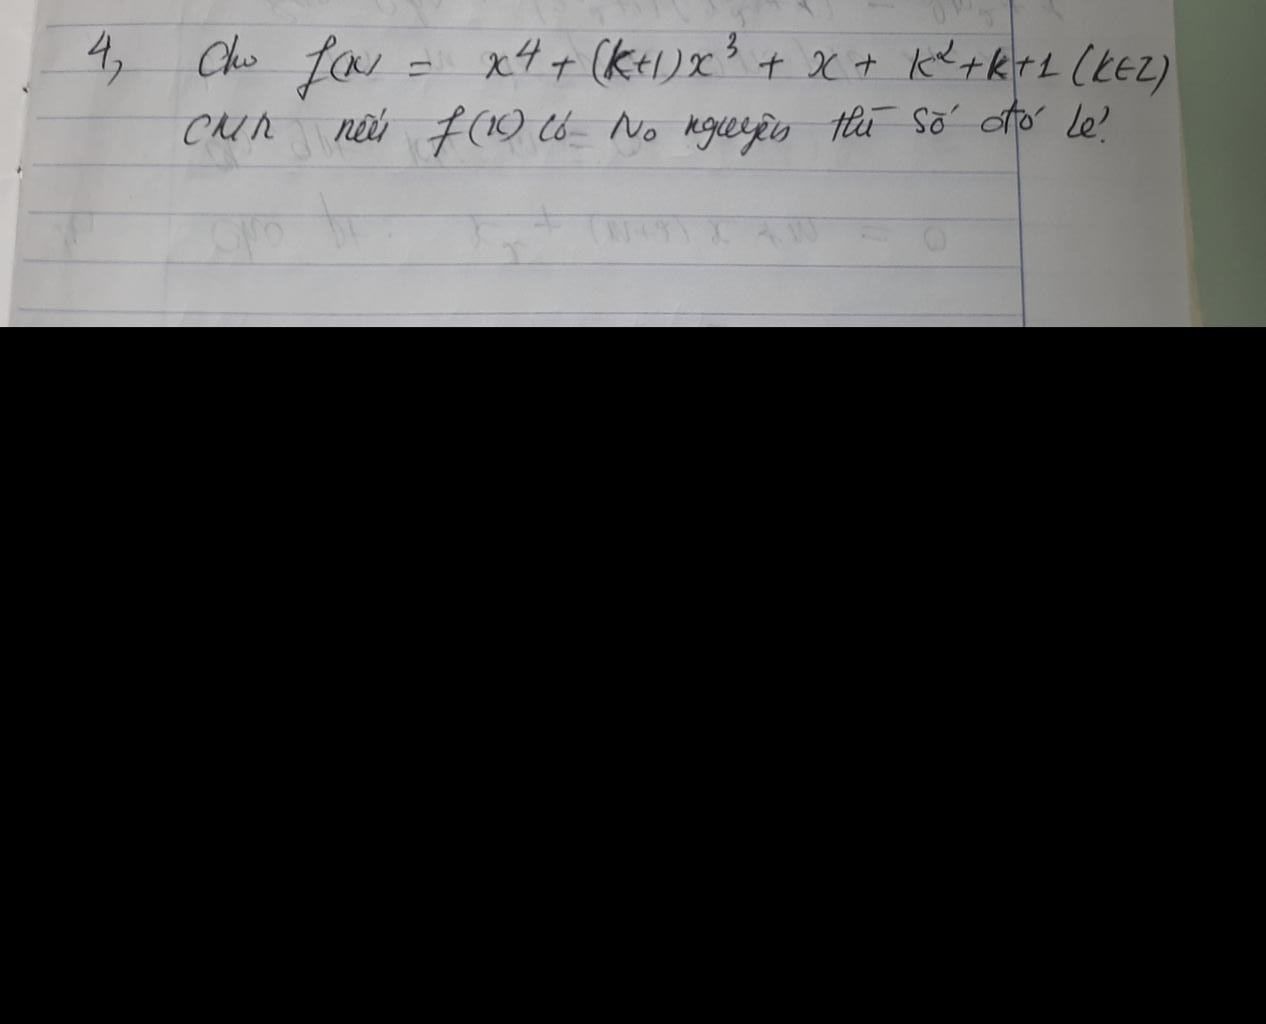 4, Cho f(x) = x⁴ + (k+1)x³ + x + k²+k+1 (k∈Z)
CMR nếu f(x) có No nguyên thì số đó lẻ.